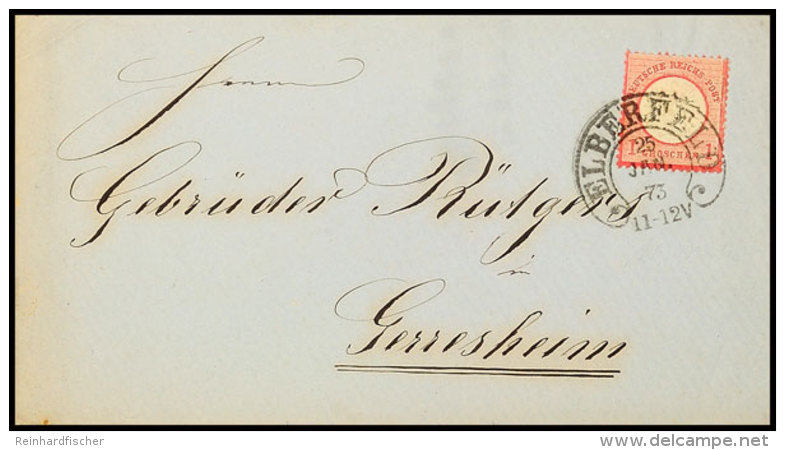 Herrn
Gebrüder Rütgers
in
Gerresheim
DEUTSCHE REICHS-POST
1 GROSCHEN 1
ELBERFELD
25
JAN.
73
11-12V
Reinhardfischer
delcampe.net